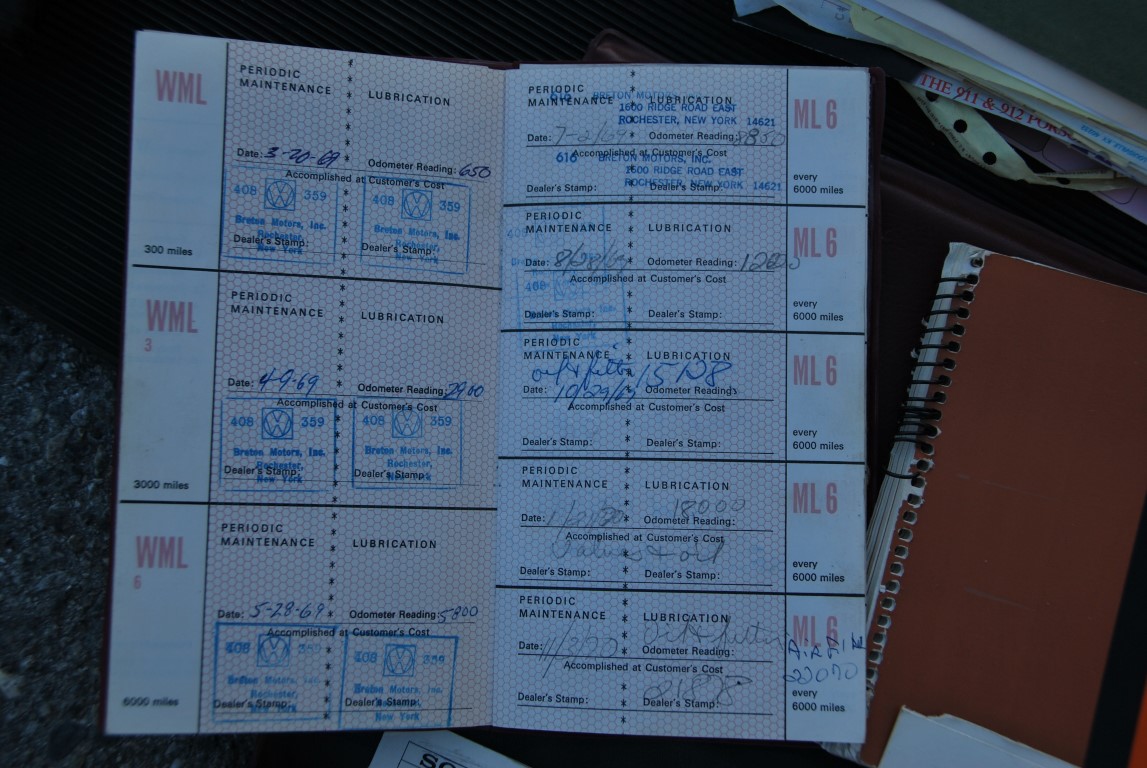 WML
PERIODIC
MAINTENANCE
LUBRICATION
Date: 3-20-69
Odometer Reading: 650
Accomplished at Customer's Cost
408 359
Breton Motors, Inc.
Rochester,
New York
408 359
Breton Motors, Inc.
Rochester,
New York
Dealer's Stamp:
Dealer's Stamp:
300 miles
WML
3
PERIODIC
MAINTENANCE
LUBRICATION
Date: 4-9-69
Odometer Reading: 2900
Accomplished at Customer's Cost
408 359
Breton Motors, Inc.
Rochester,
New York
408 359
Breton Motors, Inc.
Rochester,
New York
Dealer's Stamp:
Dealer's Stamp:
3000 miles
WML
6
PERIODIC
MAINTENANCE
LUBRICATION
Date: 5-28-69
Odometer Reading: 5800
Accomplished at Customer's Cost
408 359
Breton Motors, Inc.
Rochester,
New York
408 359
Breton Motors, Inc.
Rochester,
New York
Dealer's Stamp:
Dealer's Stamp:
6000 miles
PERIODIC
MAINTENANCE
LUBRICATION
616 BRETON MOTORS
1600 RIDGE ROAD EAST
ROCHESTER, NEW YORK 14621
Date:
Odometer Reading: 8850
Accomplished at Customer's Cost
616 BRETON MOTORS, INC.
1600 RIDGE ROAD EAST
ROCHESTER, NEW YORK 14621
Dealer's Stamp:
Dealer's Stamp:
ML 6
every
6000 miles
PERIODIC
MAINTENANCE
LUBRICATION
Date: 8/28/69
Odometer Reading:
Accomplished at Customer's Cost
408
New York
Dealer's Stamp:
Dealer's Stamp:
ML 6
every
6000 miles
PERIODIC
MAINTENANCE
LUBRICATION
oil & filter 15128
Date: 10/29/69
Odometer Reading:
Accomplished at Customer's Cost
Dealer's Stamp:
Dealer's Stamp:
ML 6
every
6000 miles
PERIODIC
MAINTENANCE
LUBRICATION
Date:
18000
Odometer Reading:
Accomplished at Customer's Cost
Valves & oil
Dealer's Stamp:
Dealer's Stamp:
ML 6
every
6000 miles
PERIODIC
MAINTENANCE
LUBRICATION
Oil & filter
Date:
Odometer Reading:
Accomplished at Customer's Cost
Dealer's Stamp:
Dealer's Stamp:
ML 6
AIR FIL
22070
every
6000 miles
THE 911 & 912 PORS